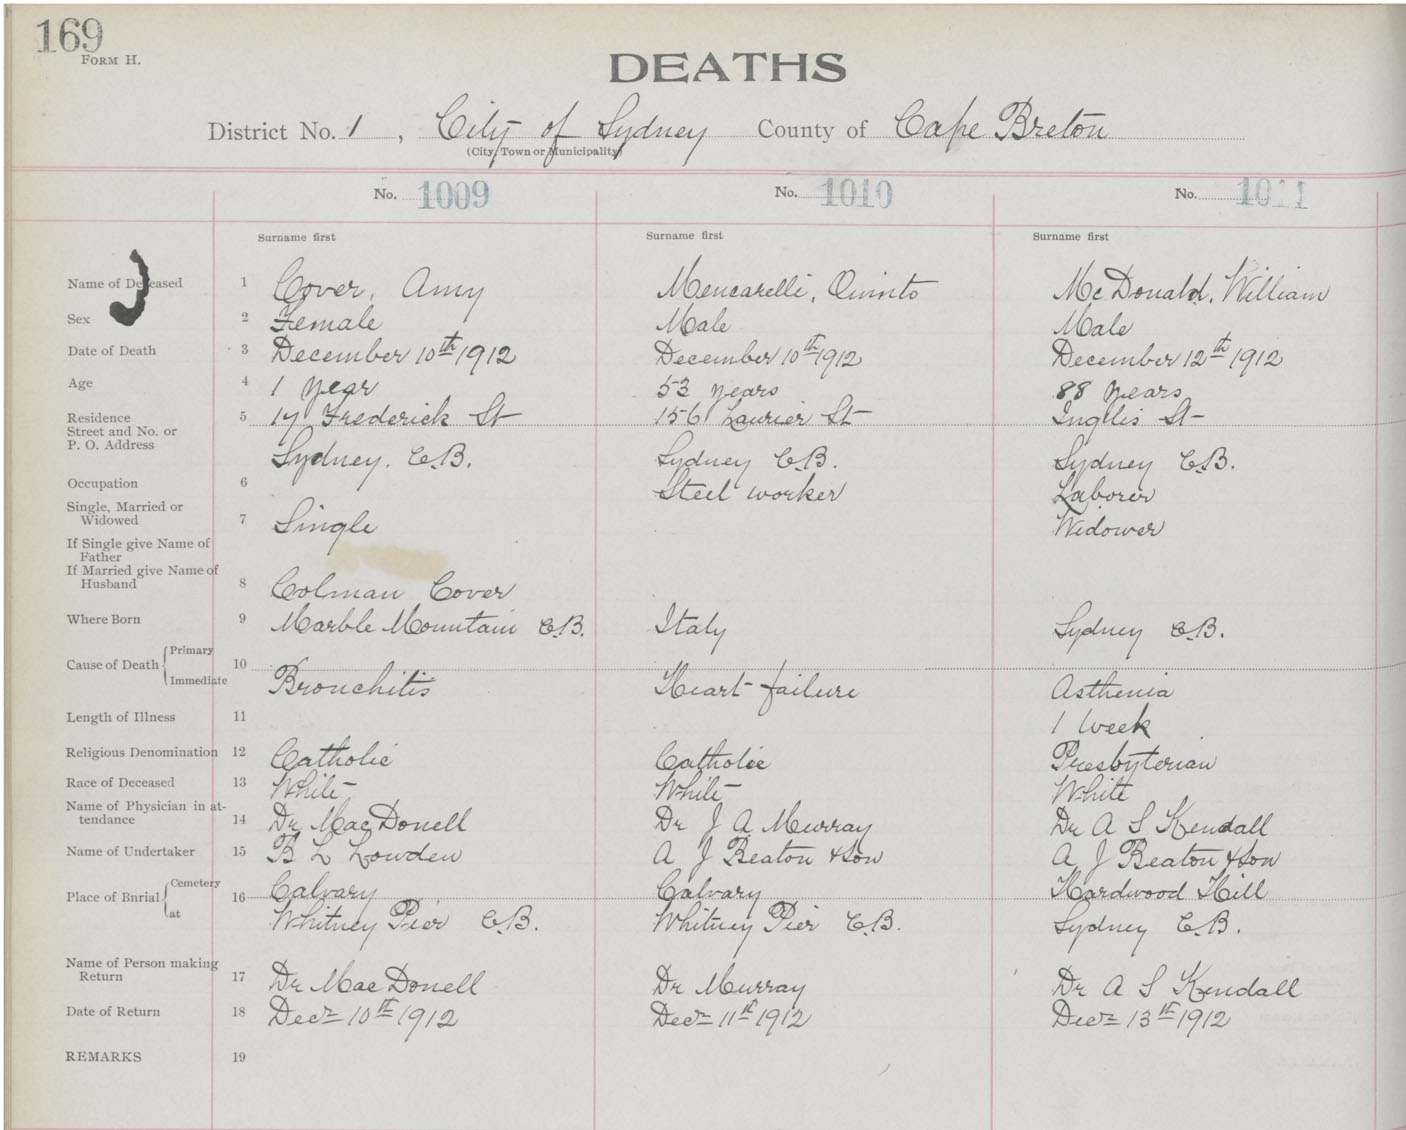 169
FORM H.
DEATHS
District No. 1, City of Sydney County of Cape Breton
(City, Town or Municipality)
No. 1009 No. 1010 No. 1011
Surname first Surname first Surname first
Name of Deceased 1 Cover, Amy Mencarelli, Quinto McDonald, William
Sex 2 Female Male Male
Date of Death 3 December 10th 1912 December 10th 1912 December 12th 1912
Age 4 1 year 53 years 88 years
Residence 5 17 Frederick St 156 Laurier St Inglis St
Street and No. or
P. O. Address Sydney. C.B. Sydney C.B. Sydney C.B.
Occupation 6 Steel worker Laborer
Single, Married or
Widowed 7 Single Widower
If Single give Name of
Father
If Married give Name of
Husband 8 Colman Cover
Where Born 9 Marble Mountain C.B. Italy Sydney C.B.
Primary
Cause of Death 10
Immediate Bronchitis Heart failure Asthenia
Length of Illness 11 1 week
Religious Denomination 12 Catholic Catholic Presbyterian
Race of Deceased 13 White White White
Name of Physician in at-
tendance 14 Dr MacDonell Dr J A Murray Dr A S Kendall
Name of Undertaker 15 B L Lowden A J Beaton & Son A J Beaton & Son
Cemetery Calvary Calvary Hardwood Hill
Place of Bnrial 16
at Whitney Pier C.B. Whitney Pier C.B. Sydney C.B.
Name of Person making
Return 17 Dr MacDonell Dr Murray Dr A S Kendall
Date of Return 18 Decr 10th 1912 Decr 11th 1912 Decr 13th 1912
REMARKS 19